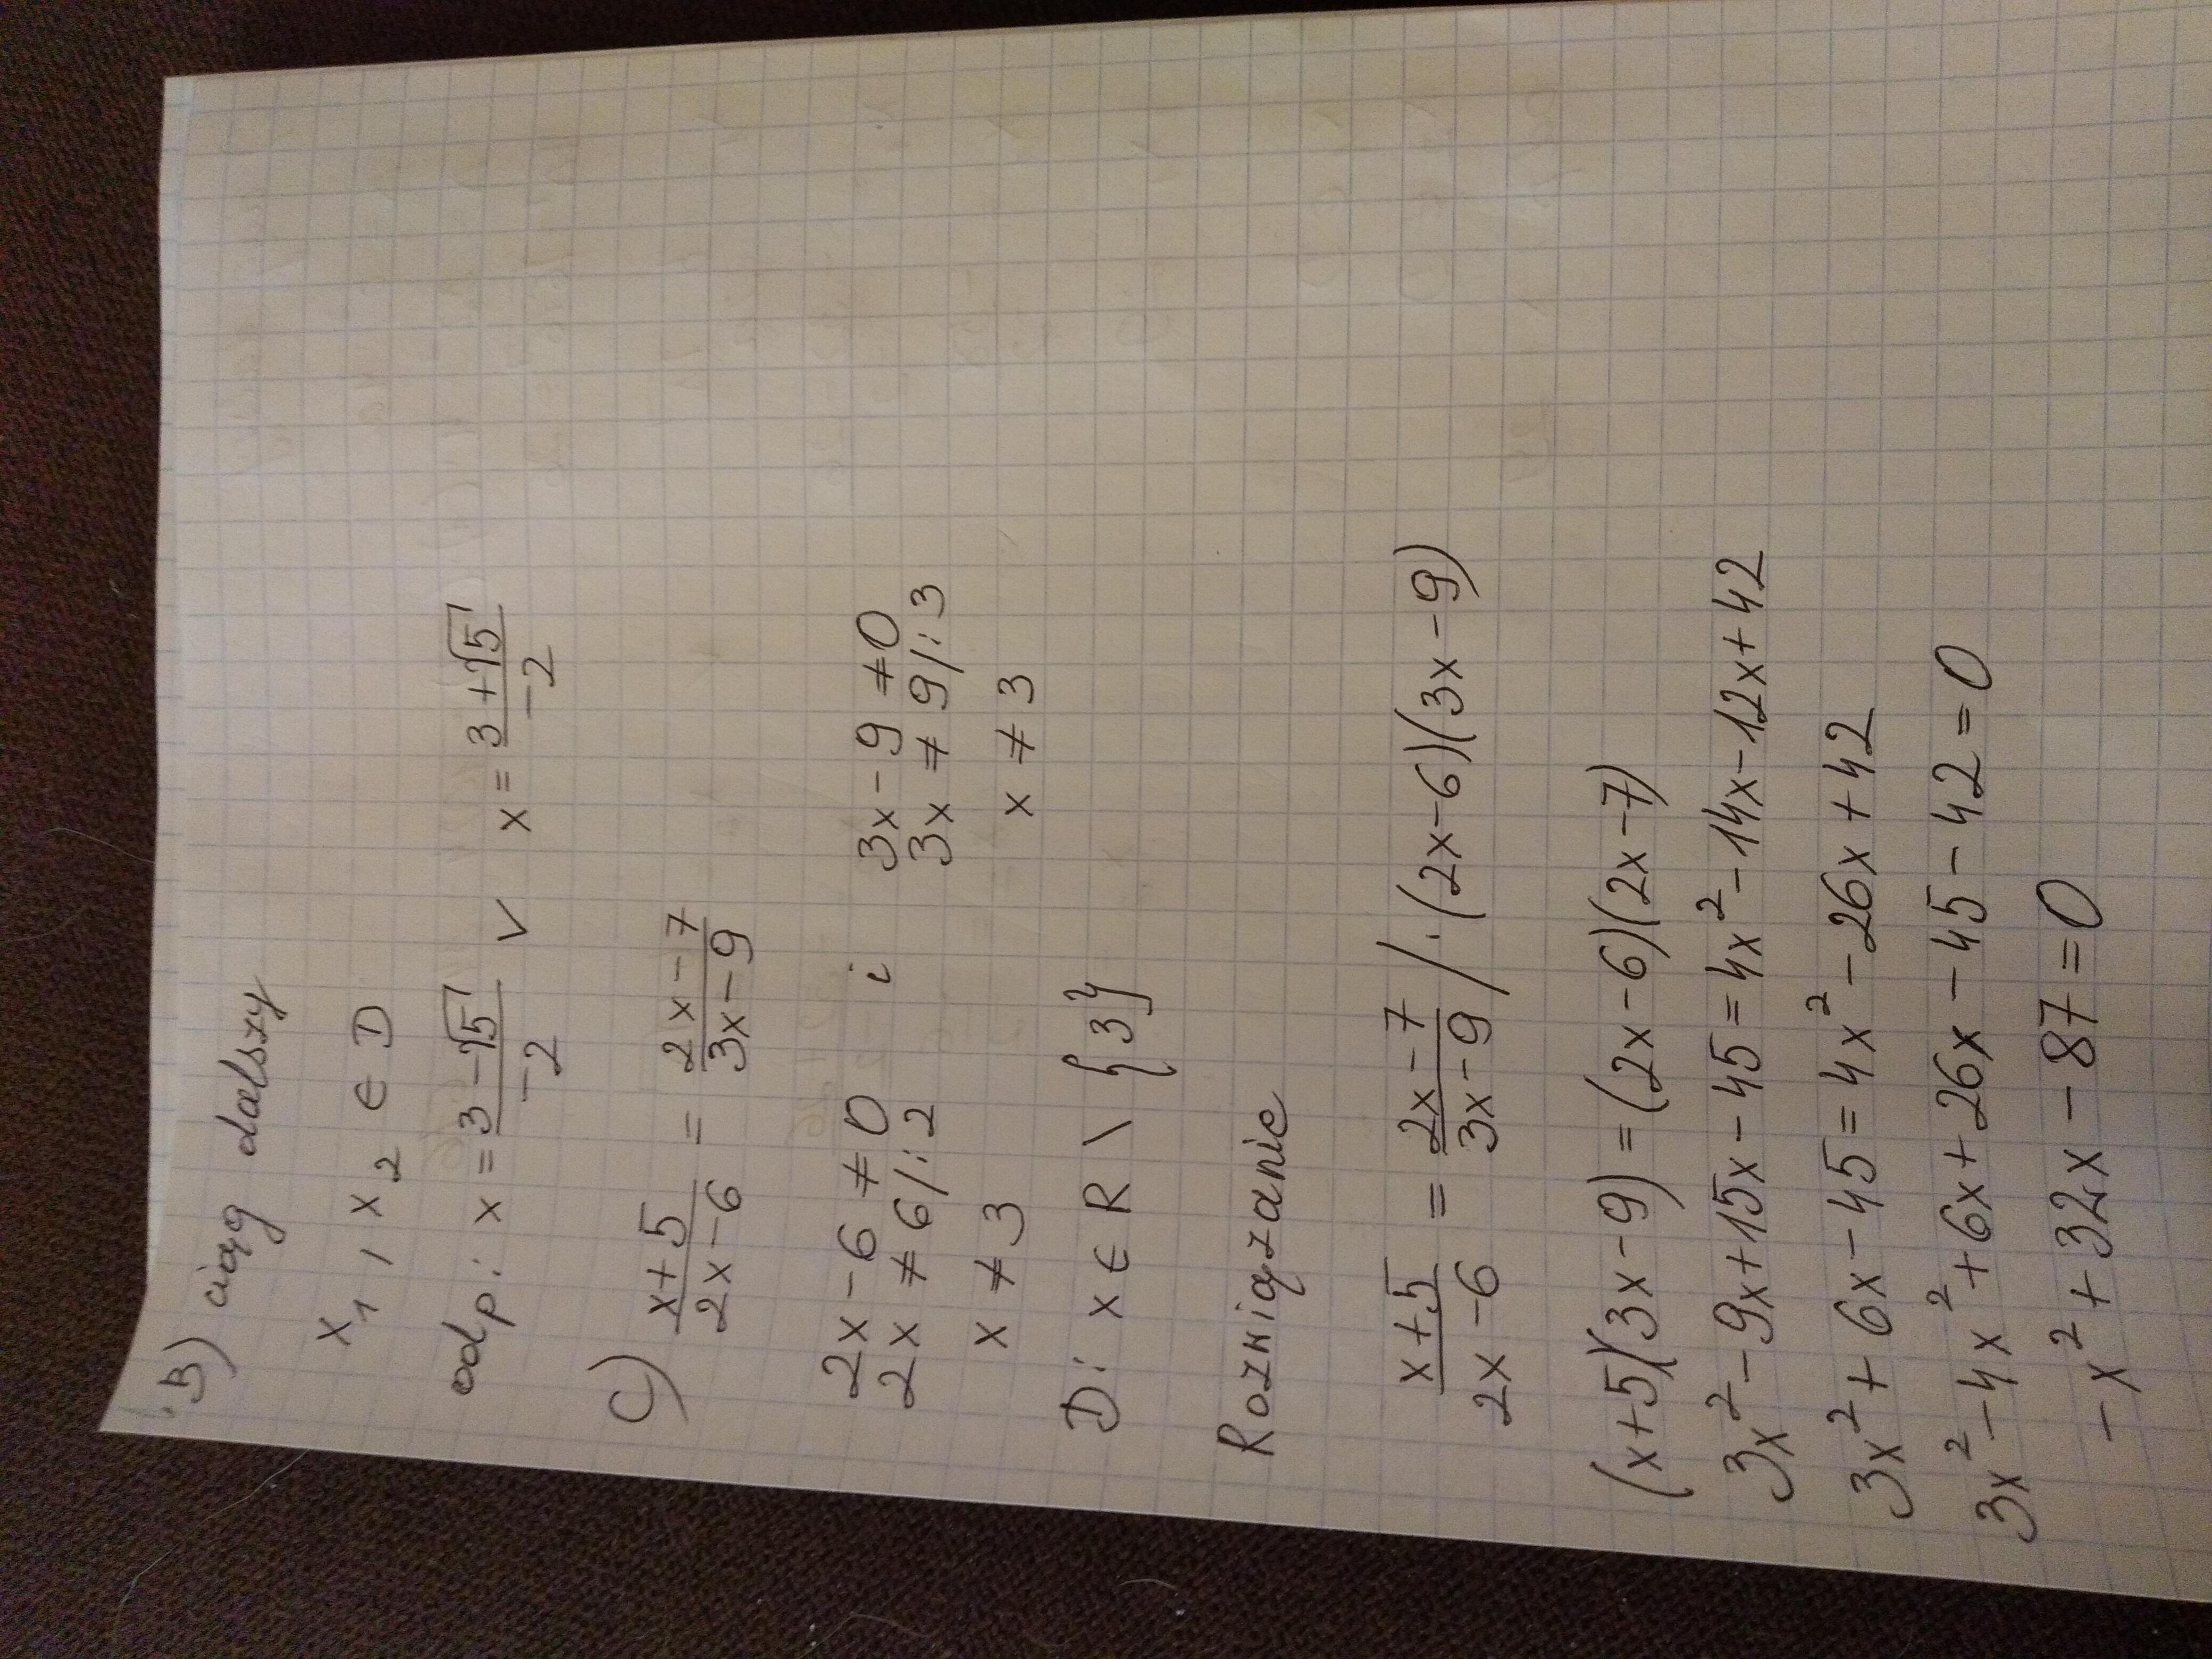 B) ciąg dalszy
x₁, x₂ ∈ D
odp: x = (3-√5)/(-2) ∨ x = (3+√5)/(-2)
C) (x+5)/(2x-6) = (2x-7)/(3x-9)
2x-6 ≠ 0 i 3x-9 ≠ 0
2x ≠ 6 /:2 3x ≠ 9 /:3
x ≠ 3 x ≠ 3
D: x ∈ R \ {3}
Rozwiązanie
(x+5)/(2x-6) = (2x-7)/(3x-9) /·(2x-6)(3x-9)
(x+5)(3x-9) = (2x-6)(2x-7)
3x²-9x+15x-45 = 4x²-14x-12x+42
3x²+6x-45 = 4x²-26x+42
3x²-4x²+6x+26x-45-42 = 0
-x²+32x-87 = 0